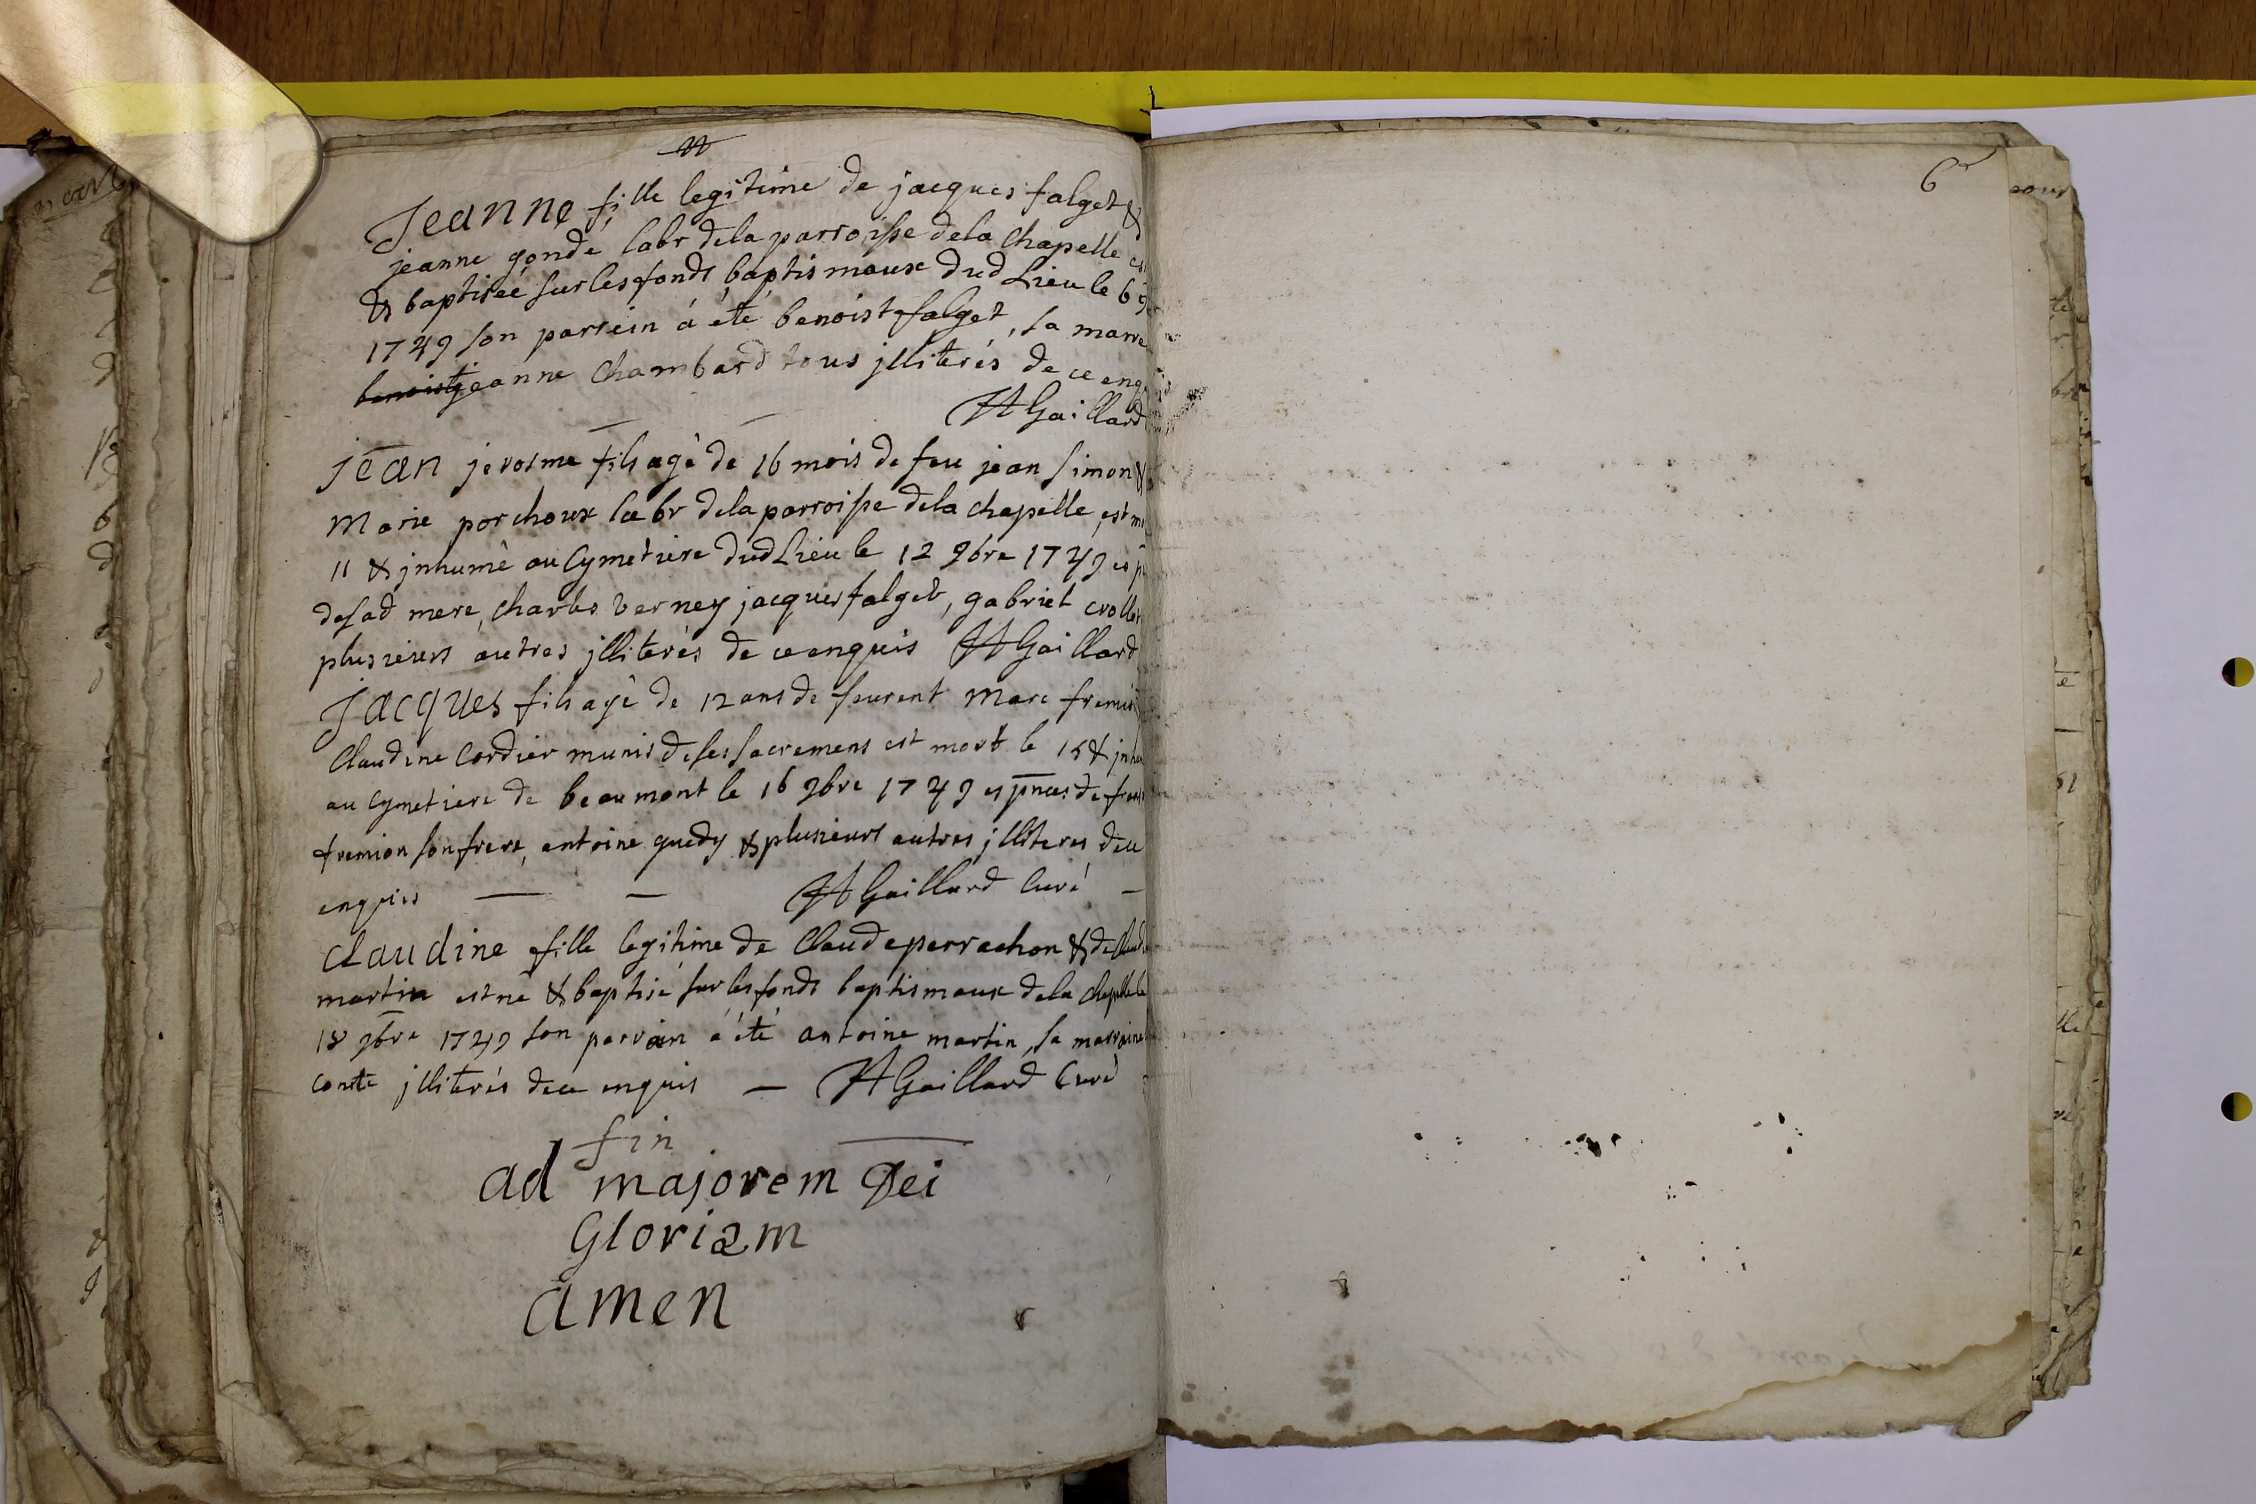 Jeanne fille legitime de jacques falget &
jeanne gondé labr dela parroisse dela chapelle
& baptisée sur les fonds baptismaux dud Lieu le 6
1749 son parrein á été benoist falget, sa marre
benoist jeanne chambard tous jlliterés de ce enq
Gaillard
jean jerosme fils agé de 16 mois de feu jean simon &
Marie porchoux labr dela parroisse dela chapelle, est m
11 & jnhumé au Cymetiere dud Lieu le 12 9bre 1749 es p
de sad mere, charles verney jacques falget, gabriel crollet
plusieurs autres jlliterés de ce enquis Gaillard
Jacques fils agé de 12 ans de feurent Marc fremi
Claudine Cordier munis de ses sacremens est mort le 15 & jnhu
au Cymetiere de beaumont le 16 9bre 1749 es pnces de
fremion son frere, antoine guedy & plusieurs autres jlliteres dece
enquis Gaillard Curé
Claudine fille legitime de Claude perrachon & de
martin est né & baptisé sur les fonds baptismaux dela chapelle le
18 9bre 1749 son parrain á été antoine martin, sa marraine
conte jlliterés dece enquis Gaillard Curé
fin
ad majorem Dei
Gloriam
amen
6